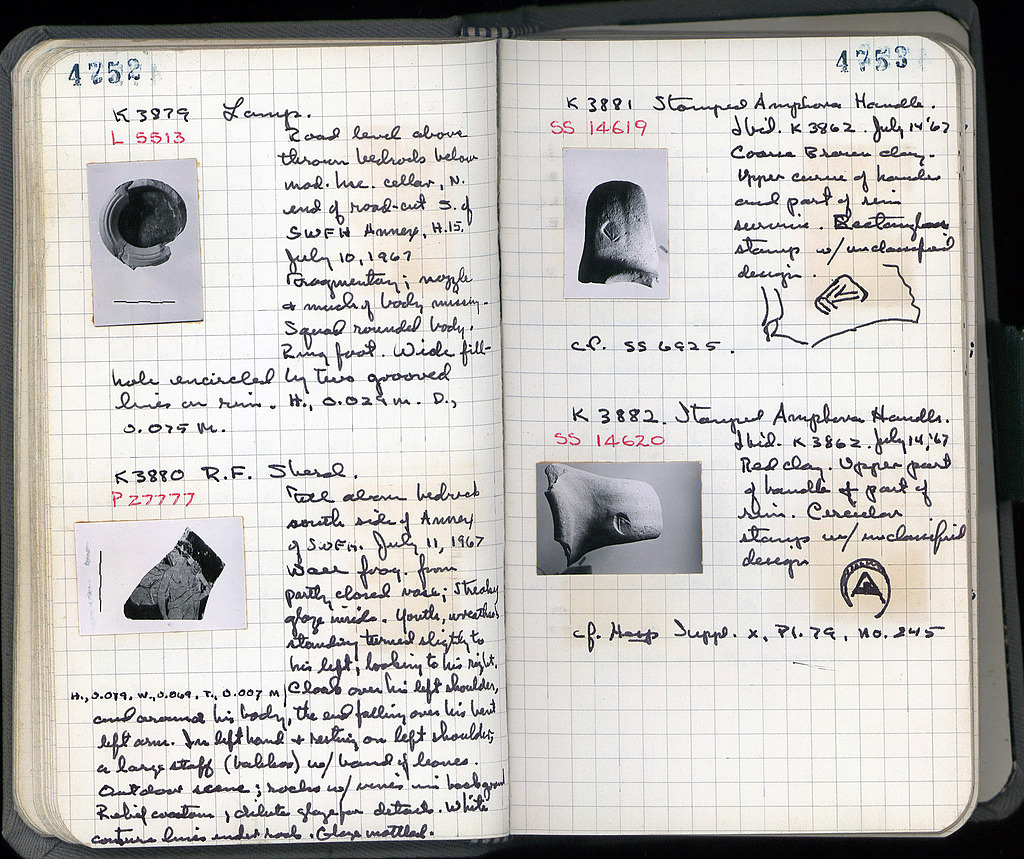 4752
K 3879 Lamp.
L 5513
Road level above
thrown bedrods below
mod. hse. cellar, N.
end of road-cut S. of
SWFH Annex, H.15,
July 10, 1967
Fragmentary; nozzle
+ much of body missing.
Squat rounded body.
Ring foot. Wide fill-
hole encircled by two grooved
lines on rim. H., 0.029 m. D.,
0.075 m.
K 3880 R.F. Sherd.
P 27777
above bedrock
south side of Annex
of SWFH. July 11, 1967
Wall frag. from
partly closed vase; streaky
glaze inside. Youth, wreathed
standing turned slightly to
his left, looking to his right.
H., 0.079, W., 0.069, T., 0.007 m
Cloak over his left shoulder,
and around his body, the end falling over his bent
left arm. In left hand + resting on left shoulder,
a large staff (bakkos) w/ band of leaves.
Outdoor scene; rocks w/ vines in background
Relief contour; dilute glaze for details. White
contour lines under rocks. Glaze mottled.
4753
K 3881 Stamped Amphora Handle.
SS 14619
Ibid. K 3862. July 14 '67
Coarse Brown clay.
Upper curve of handle
and part of rim
survive. Rectangular
stamp w/ unclassified
design.
cf. SS 6925.
K 3882. Stamped Amphora Handle.
SS 14620
Ibid. K 3862. July 14, '67
Red clay. Upper part
of handle + part of
rim. Circular
stamp w/ unclassified
design
cf. Hesp Suppl. X, Pl. 79, no. 245